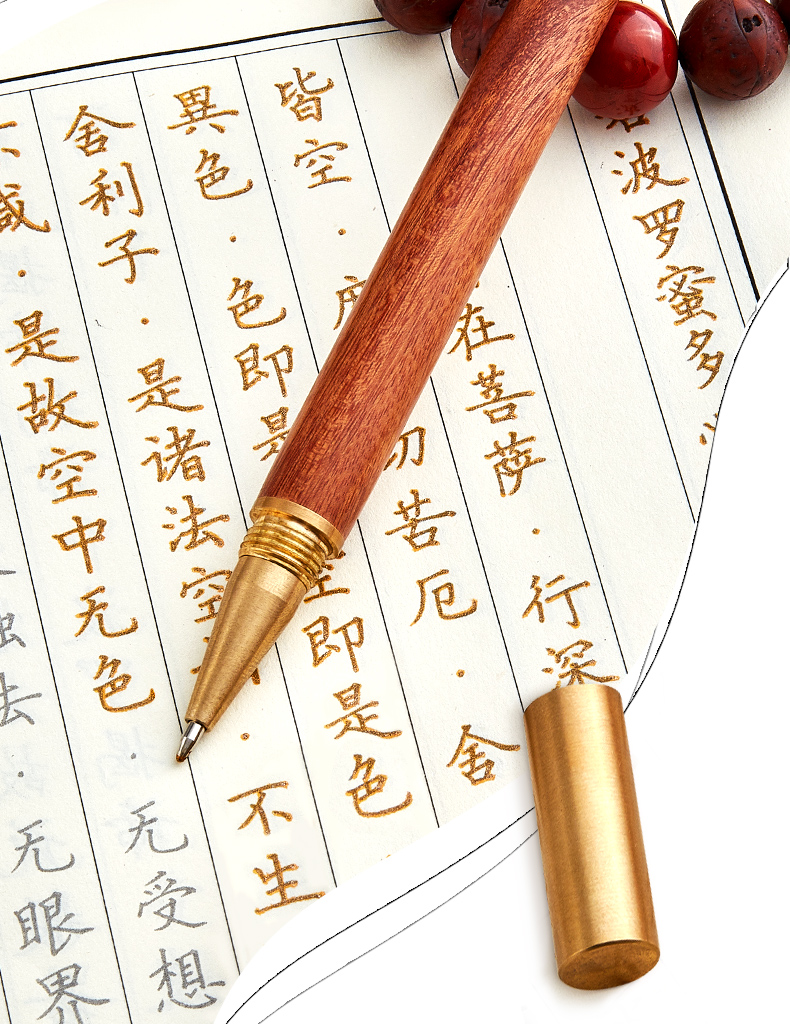 波罗蜜多
在菩萨·行深
皆空·度切苦厄·舍
異色·色即是空即是色
舍利子·是诸法空相·不生
减·是故空中无色·无受想
法·无眼界